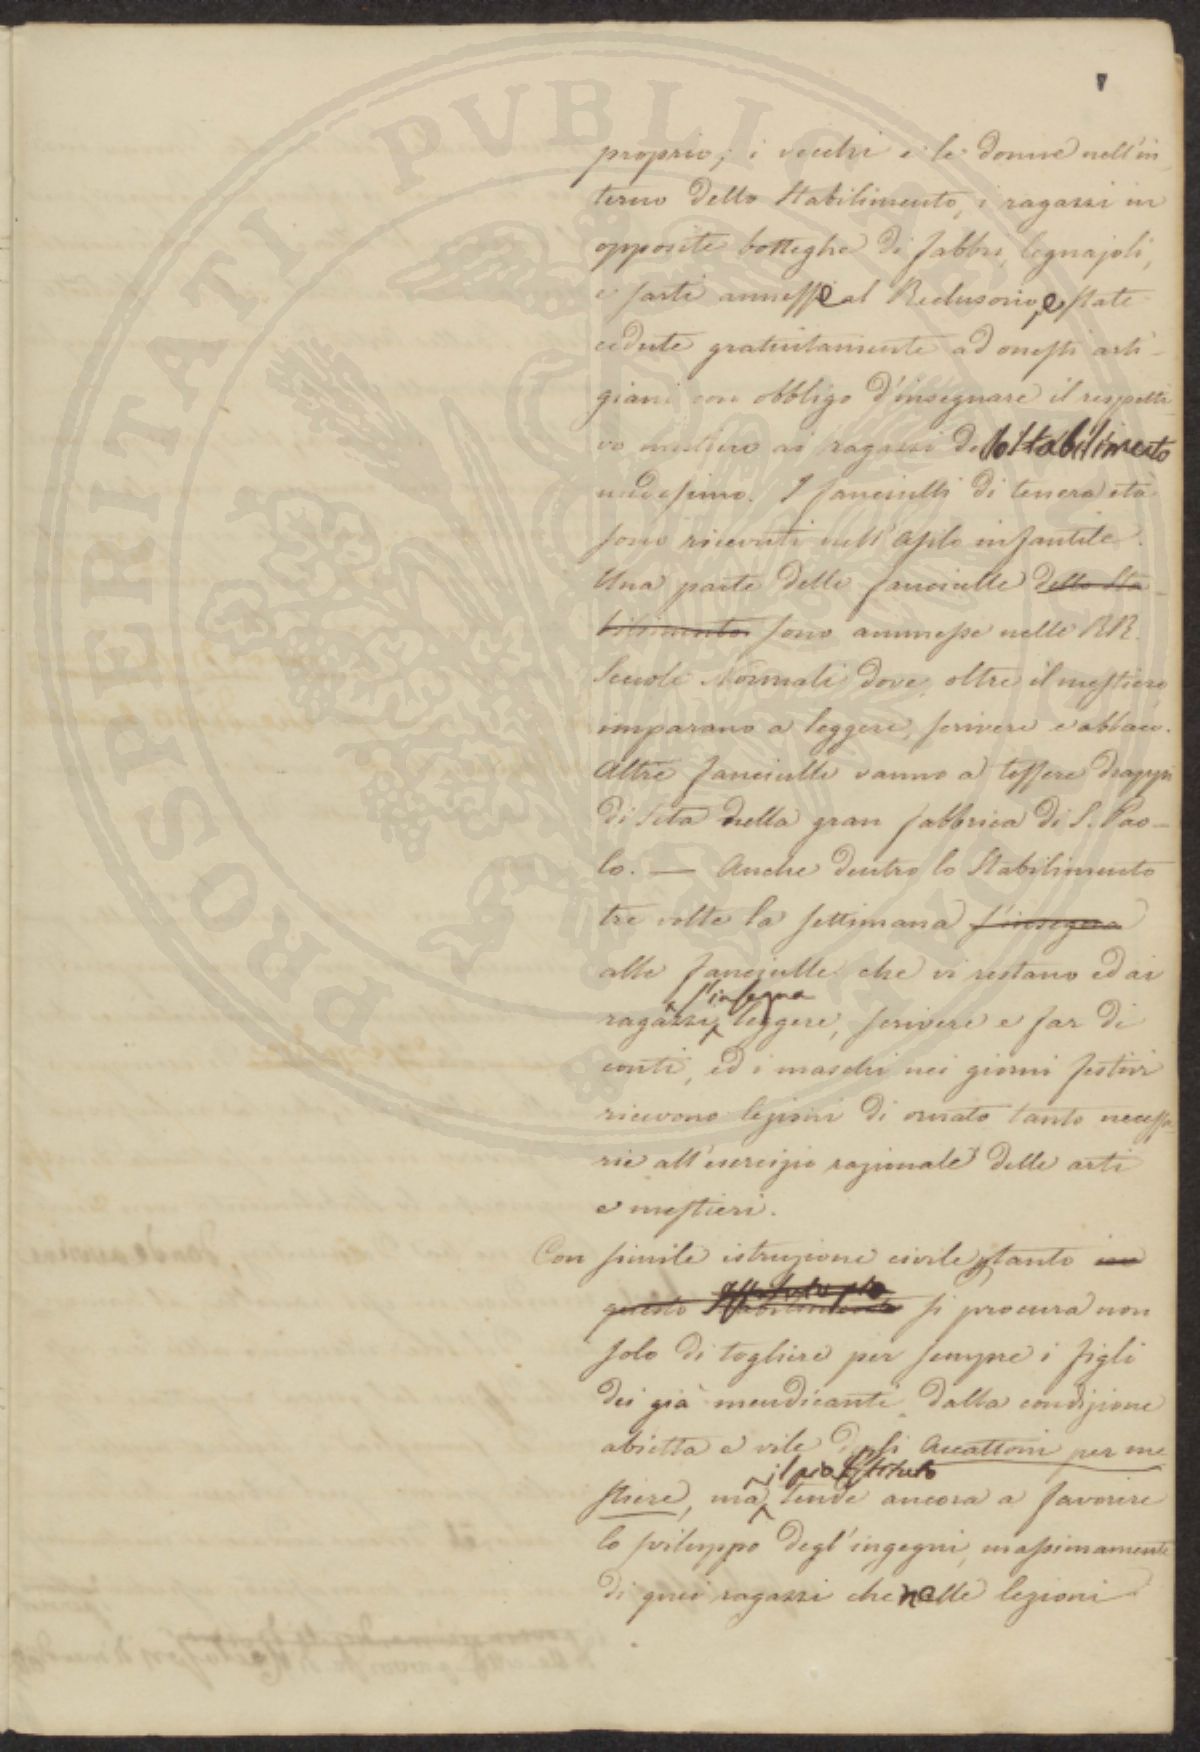 proprio; i vecchi e le donne nell'in
terno dello Stabilimento, i ragazzi in
apposite botteghe di fabbri, legnajoli,
e sarti annesse al Reclusorio, e state
cedute gratuitamente ad onesti arti-
giani con obbligo d'insegnare il rispetti-
vo mestiere ai ragazzi dello Stabilimento
medesimo. I fanciulli di tenera età
sono ricevuti nell'Asilo infantile.
Una parte delle fanciulle dello Sta-
bilimento sono ammesse nelle RR.
Scuole Normali dove, oltre il mestiere
imparano a leggere, scrivere e abbaco.
Altre fanciulle vanno a tessere drappi
di seta nella gran fabbrica di S. Pao-
lo. — Anche dentro lo Stabilimento
tre volte la settimana s'insegna
alle fanciulle che vi restano ed ai
s'insegna
ragazzi, leggere, scrivere e far di
conti, ed i maschi nei giorni festivi
ricevono lezioni di ornato tanto necessa-
rie all'esercizio razionale delle arti
e mestieri.
Con simile istruzione civile, tanto in
questo Stabilimento si procura non
solo di togliere per sempre i figli
dei già mendicanti dalla condizione
abietta e vile degli Accattoni per me
il pio Istituto
stiere, ma tende ancora a favorire
lo sviluppo degl'ingegni, massimamente
di quei ragazzi che nelle lezioni
PROSPERITATI PVBLICAE